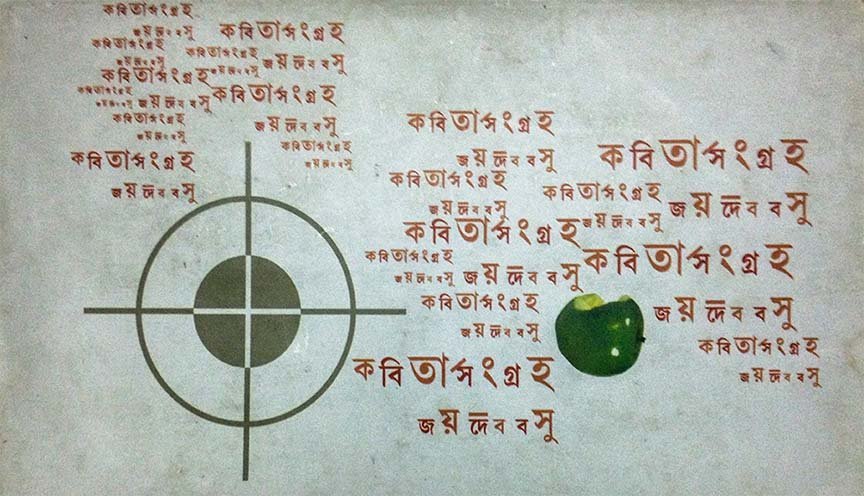 কবিতাসংগ্রহ
জয়দেব বসু
কবিতাসংগ্রহ
জয়দেব বসু
কবিতাসংগ্রহ
জয়দেব বসু
কবিতাসংগ্রহ
জয়দেব বসু
কবিতাসংগ্রহ
জয়দেব বসু
কবিতাসংগ্রহ
জয়দেব বসু
কবিতাসংগ্রহ
জয়দেব বসু
কবিতাসংগ্রহ
জয়দেব বসু
কবিতাসংগ্রহ
জয়দেব বসু
কবিতাসংগ্রহ
জয়দেব বসু
কবিতাসংগ্রহ
জয়দেব বসু
কবিতাসংগ্রহ
জয়দেব বসু
কবিতাসংগ্রহ
জয়দেব বসু
কবিতাসংগ্রহ
জয়দেব বসু
কবিতাসংগ্রহ
জয়দেব বসু
কবিতাসংগ্রহ
জয়দেব বসু
কবিতাসংগ্রহ
জয়দেব বসু
কবিতাসংগ্রহ
জয়দেব বসু
কবিতাসংগ্রহ
জয়দেব বসু
কবিতাসংগ্রহ
জয়দেব বসু